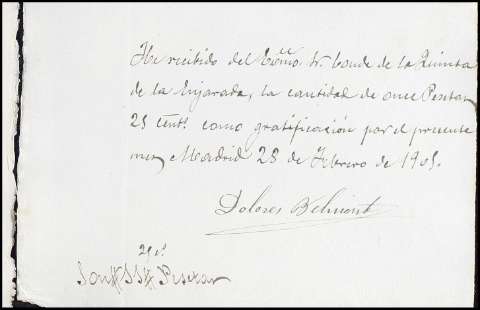 He recibido del Excmo. Sr. Conde de la Quinta
de la Enjarada, la cantidad de once Pesetas
25 cents. como gratificación por el presente
mes, Madrid 28 de Febrero de 1905.
Dolores Belmont
25 cs.
Son 11 Pesetas